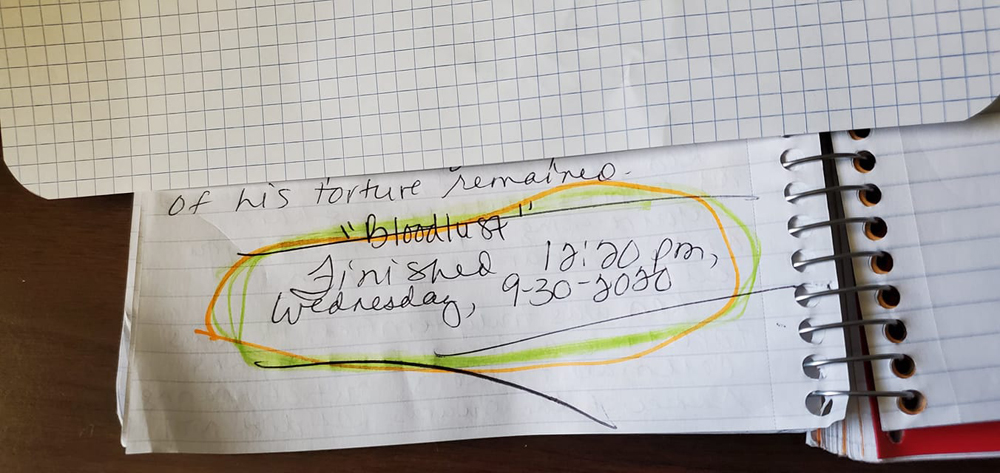 of his torture remained.
"Bloodlust"
Finished 12:20 pm,
Wednesday, 9-30-2020